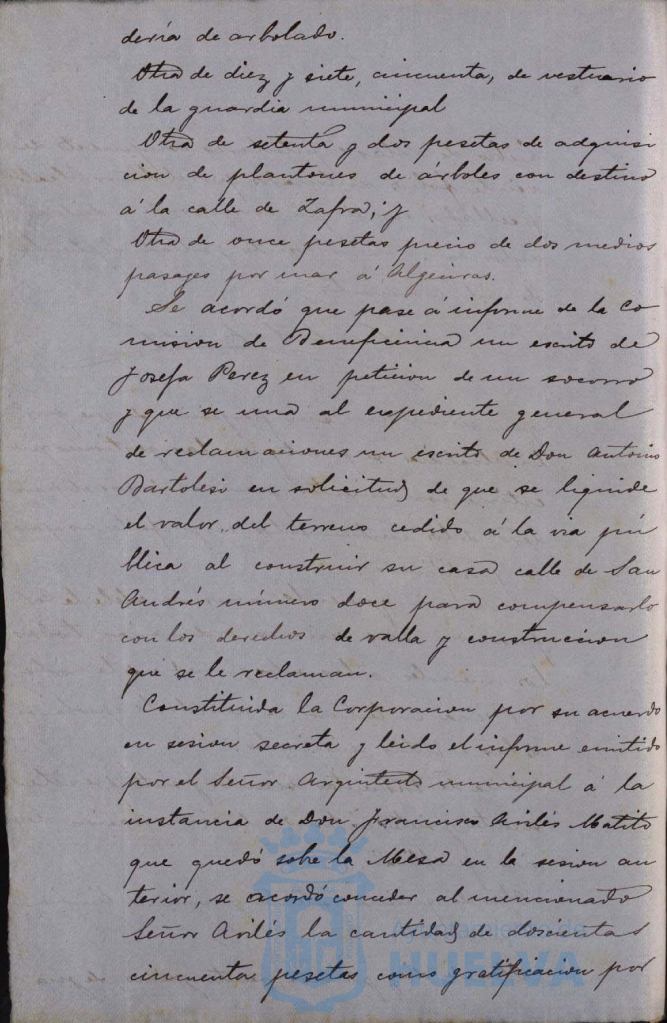 dería de arbolado.
Otra de diez y siete, cincuenta, de vestuario
de la guardia municipal
Otra de setenta y dos pesetas de adquisi
cion de plantones de árboles con destino
á la calle de Zafra; y
Otra de once pesetas precio de dos medios
pasages por mar á Algeciras.
Se acordó que pase á informe de la Co
mision de Beneficencia un escrito de
Josefa Perez en peticion de un socorro
y que se una al expediente general
de reclamaciones un escrito de Don Antonio
Bartolesi en solicitud de que se liquide
el valor del terreno cedido á la via pú
blica al construir su casa calle de San
Andrés número doce para compensarlo
con los derechos de valla y construccion
que se le reclaman.
Constituida la Corporacion por su acuerdo
en sesion secreta y leido el informe emitido
por el Señor Arquitecto municipal á la
instancia de Don Francisco Avilés Matito
que quedó sobre la Mesa en la sesion an
terior, se acordó conceder al mencionado
Señor Avilés la cantidad de doscientas
cincuenta pesetas como gratificacion por
Ayuntamiento de
HUELVA